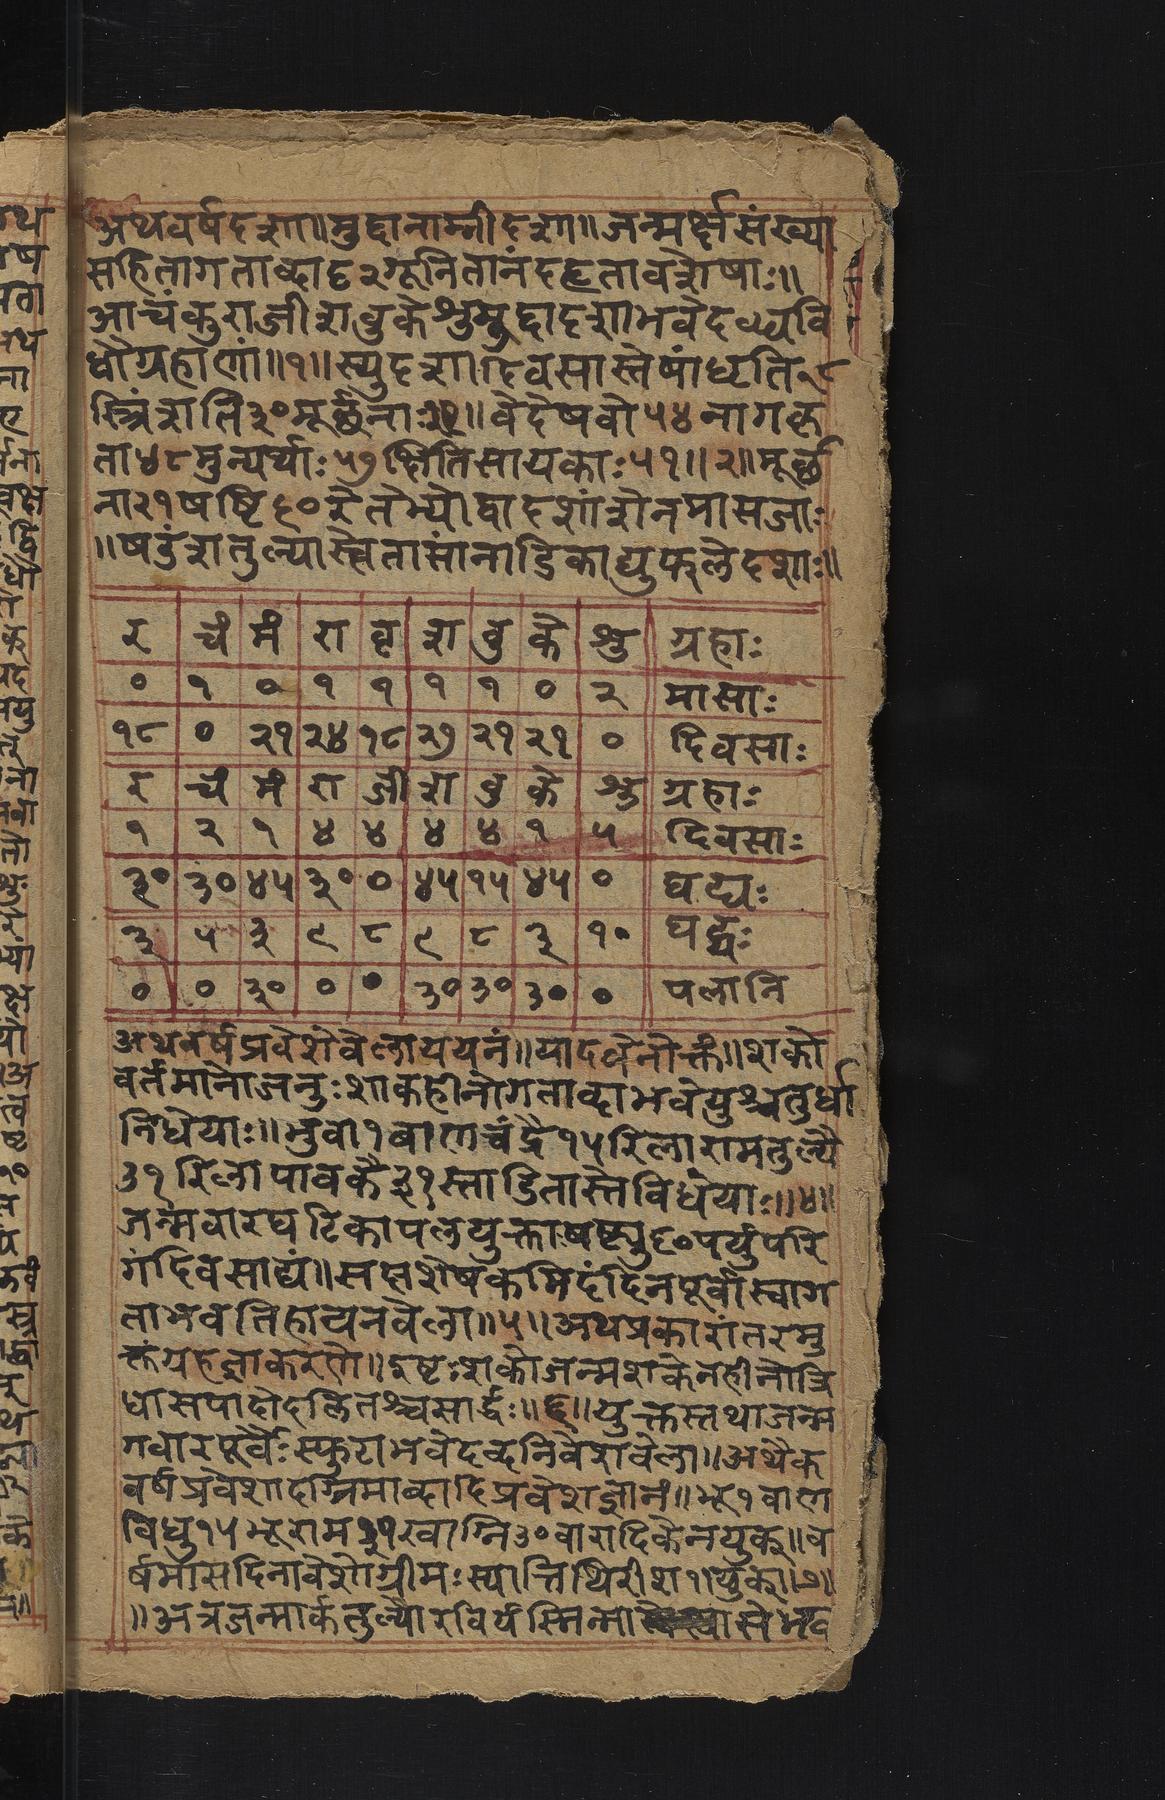 अथवर्षदशा॥मुद्दानाम्नीदशा॥जन्मर्क्षसंख्या
सहितागताब्दादृ२गूनितानंदहृतावशेषाः॥
आचंकुराजीशबुकेशुमुद्दादशाभवेदव्दवि
धौग्रहाणां॥१॥स्युदशादिवसास्तेषांधृति१८
स्त्रिंशति३०मूर्छनाः॥वेदेषवो५४नागकृ
ता४८मुन्यर्थाः५७क्षितिसायकाः५१॥२॥मूर्छ
ना२१षष्टि६०रेतेभ्योद्वादशांशेनमासजाः
॥षडंशतुल्यास्वेतासांनाडिकाद्युफलेदशाः॥
र चं मं रा वृ श बु के शु ग्रहाः
० १ ० १ १ १ १ ० २ मासाः
१८ ० २१ २४ १८ २७ २१ २१ ० दिवसाः
र चं मं रा जी श बु के शु ग्रहाः
१ २ १ ४ ४ ४ ४ १ ५ दिवसाः
३० ३० ४५ ३० ० ४५ १५ ४५ ० घट्यः
३ ५ ३ ९ ८ ९ ८ ३ १० घट्यः
० ० ३० ० ० ३० ३० ३० ० पलानि
अथवर्षप्रवेशेवेलाययनं॥यादवेनोक्तं॥शको
वर्तमानोजनुःशाकहीनोगताब्दाभवेयुश्चतुर्धा
निधेयाः॥भुवा१बाणचंद्रै१५रिलारामतुल्यै
३१रिलापावकै३१स्ताडितास्तेविधेयाः॥४॥
जन्मवारघटिकापलयुक्ताषष्ट्यु६०पर्युपरि
गंदिवसाद्यं॥सप्तशेषकमिदंदिनपूर्वास्वाग
ताभवतिहायनवेला॥५॥अथप्रकारांतरमु
क्तंग्रहज्ञाकरणे॥इष्टःशकोजन्मशकेनहीनोत्रि
धासपादोदलितश्चसार्द्धः॥६॥युक्तस्तथाजन्म
गवारपूर्वैःस्फुटाभवेदब्दनिवेशवेला॥अथैक
वर्षप्रवेशादग्रिमाब्दादिप्रवेशज्ञानं॥भू१बाण
विधु१५भूराम३१खाग्नि३०वारादिकेनयुक्॥व
र्षमासदिनावेशोग्रीमःस्यात्तिथिरीश११युक्॥७॥
॥अत्रजन्मार्कतुल्योरविर्यस्मिन्मासेभव